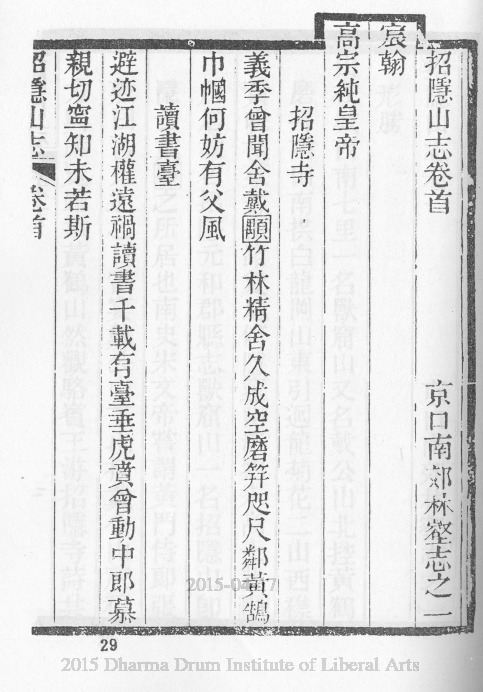 招隱山志卷首 京口南郊林壑志之一
宸翰
高宗純皇帝
招隱寺
義季曾聞舍戴顒竹林精舍久成空磨笄咫尺鄰黃鵠
巾幗何妨有父風
讀書臺
避迹江湖權遠禍讀書千載有臺垂虎賁曾動中郎慕
親切寧知未若斯
招隱山志 卷首
29
2015 Dharma Drum Institute of Liberal Arts